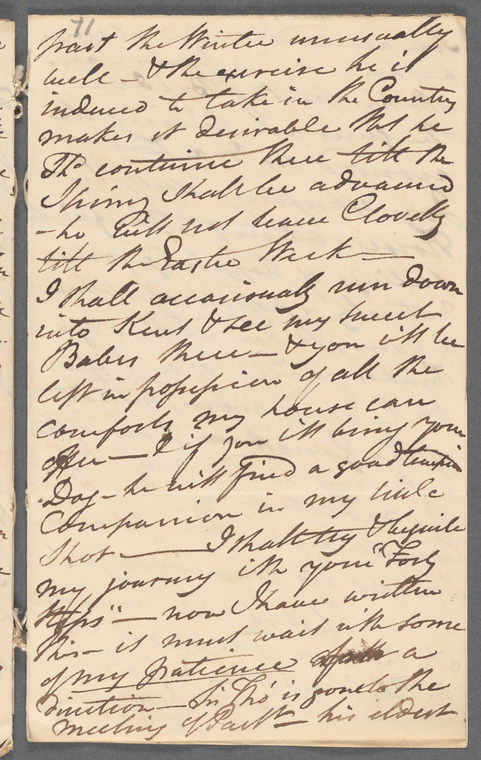 71
past the Winter unusually
well - & the exercise he is
induced to take in the Country
makes it desirable that he
Shd. continue there till the
Spring shall be advanced
- he will not leave Clovelly
till the Easter Week -
I shall occasionally run down
into Kent & see my sweet
Babes there - & you will be
left in possession of all the
comforts my house can
offer - & if you will bring your
Dog - he will find a good
Companion in my little
Shot - I shall try & beguile
my journey with your "Forty
Steps" - now I have written
this - it must wait with some
of my patience a
direction - Sr. Thos. is gone to the
meeting of Parlt. - his eldest